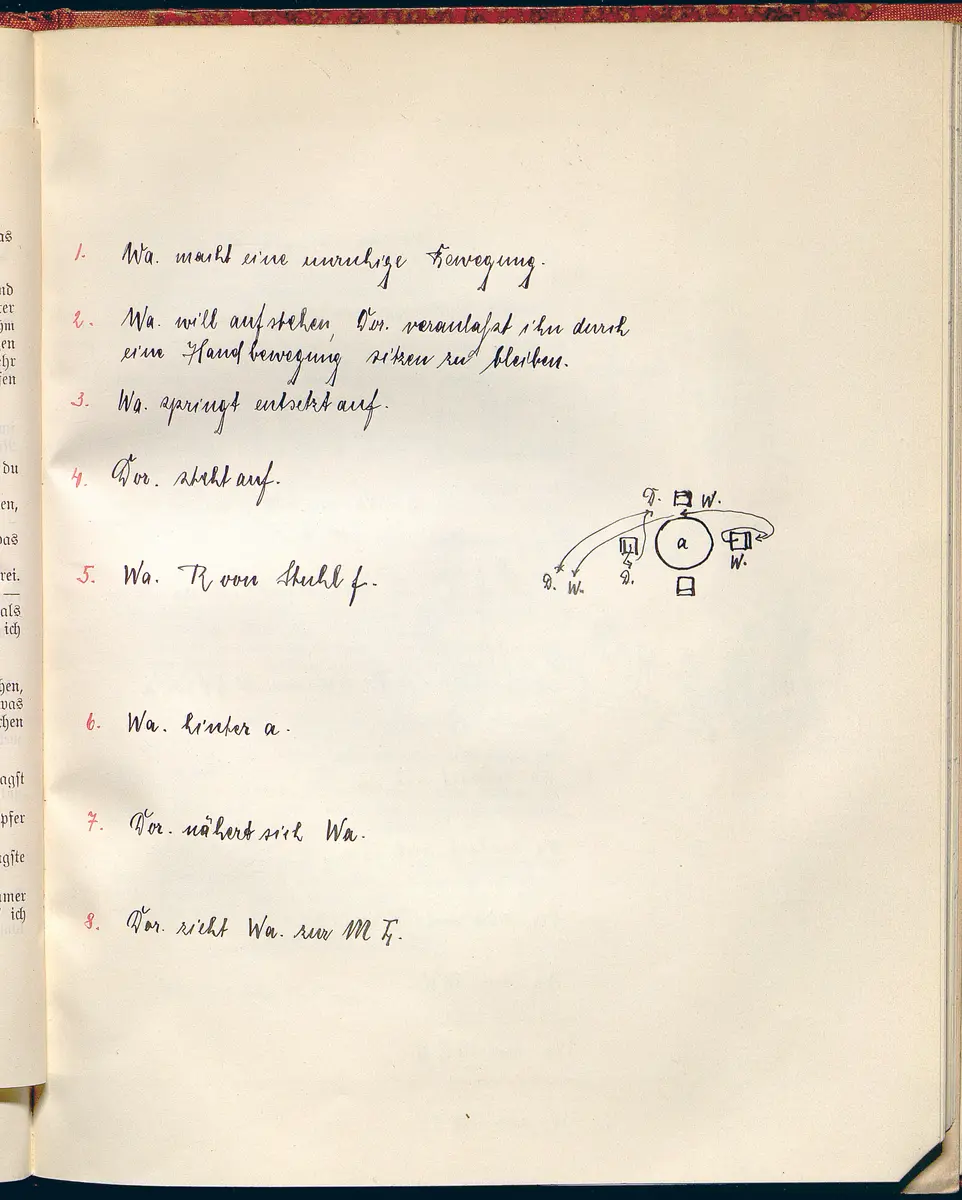 as
nd
ter
hm
en
ehr
fen
du
en,
das
rei.
als
ich
hen,
was
chen
agſt
pfer
ngſte
mmer
ich
1. Wa. macht eine unruhige Bewegung.
2. Wa. will aufstehen, Dor. veranlaßt ihn durch
eine Handbewegung sitzen zu bleiben.
3. Wa. springt entsetzt auf.
4. Dor. steht auf.
D. W.
a
W.
D.
D. W.
5. Wa. R von Stuhl f.
6. Wa. hinter a.
7. Dor. nähert sich Wa.
8. Dor. zieht Wa. zur M